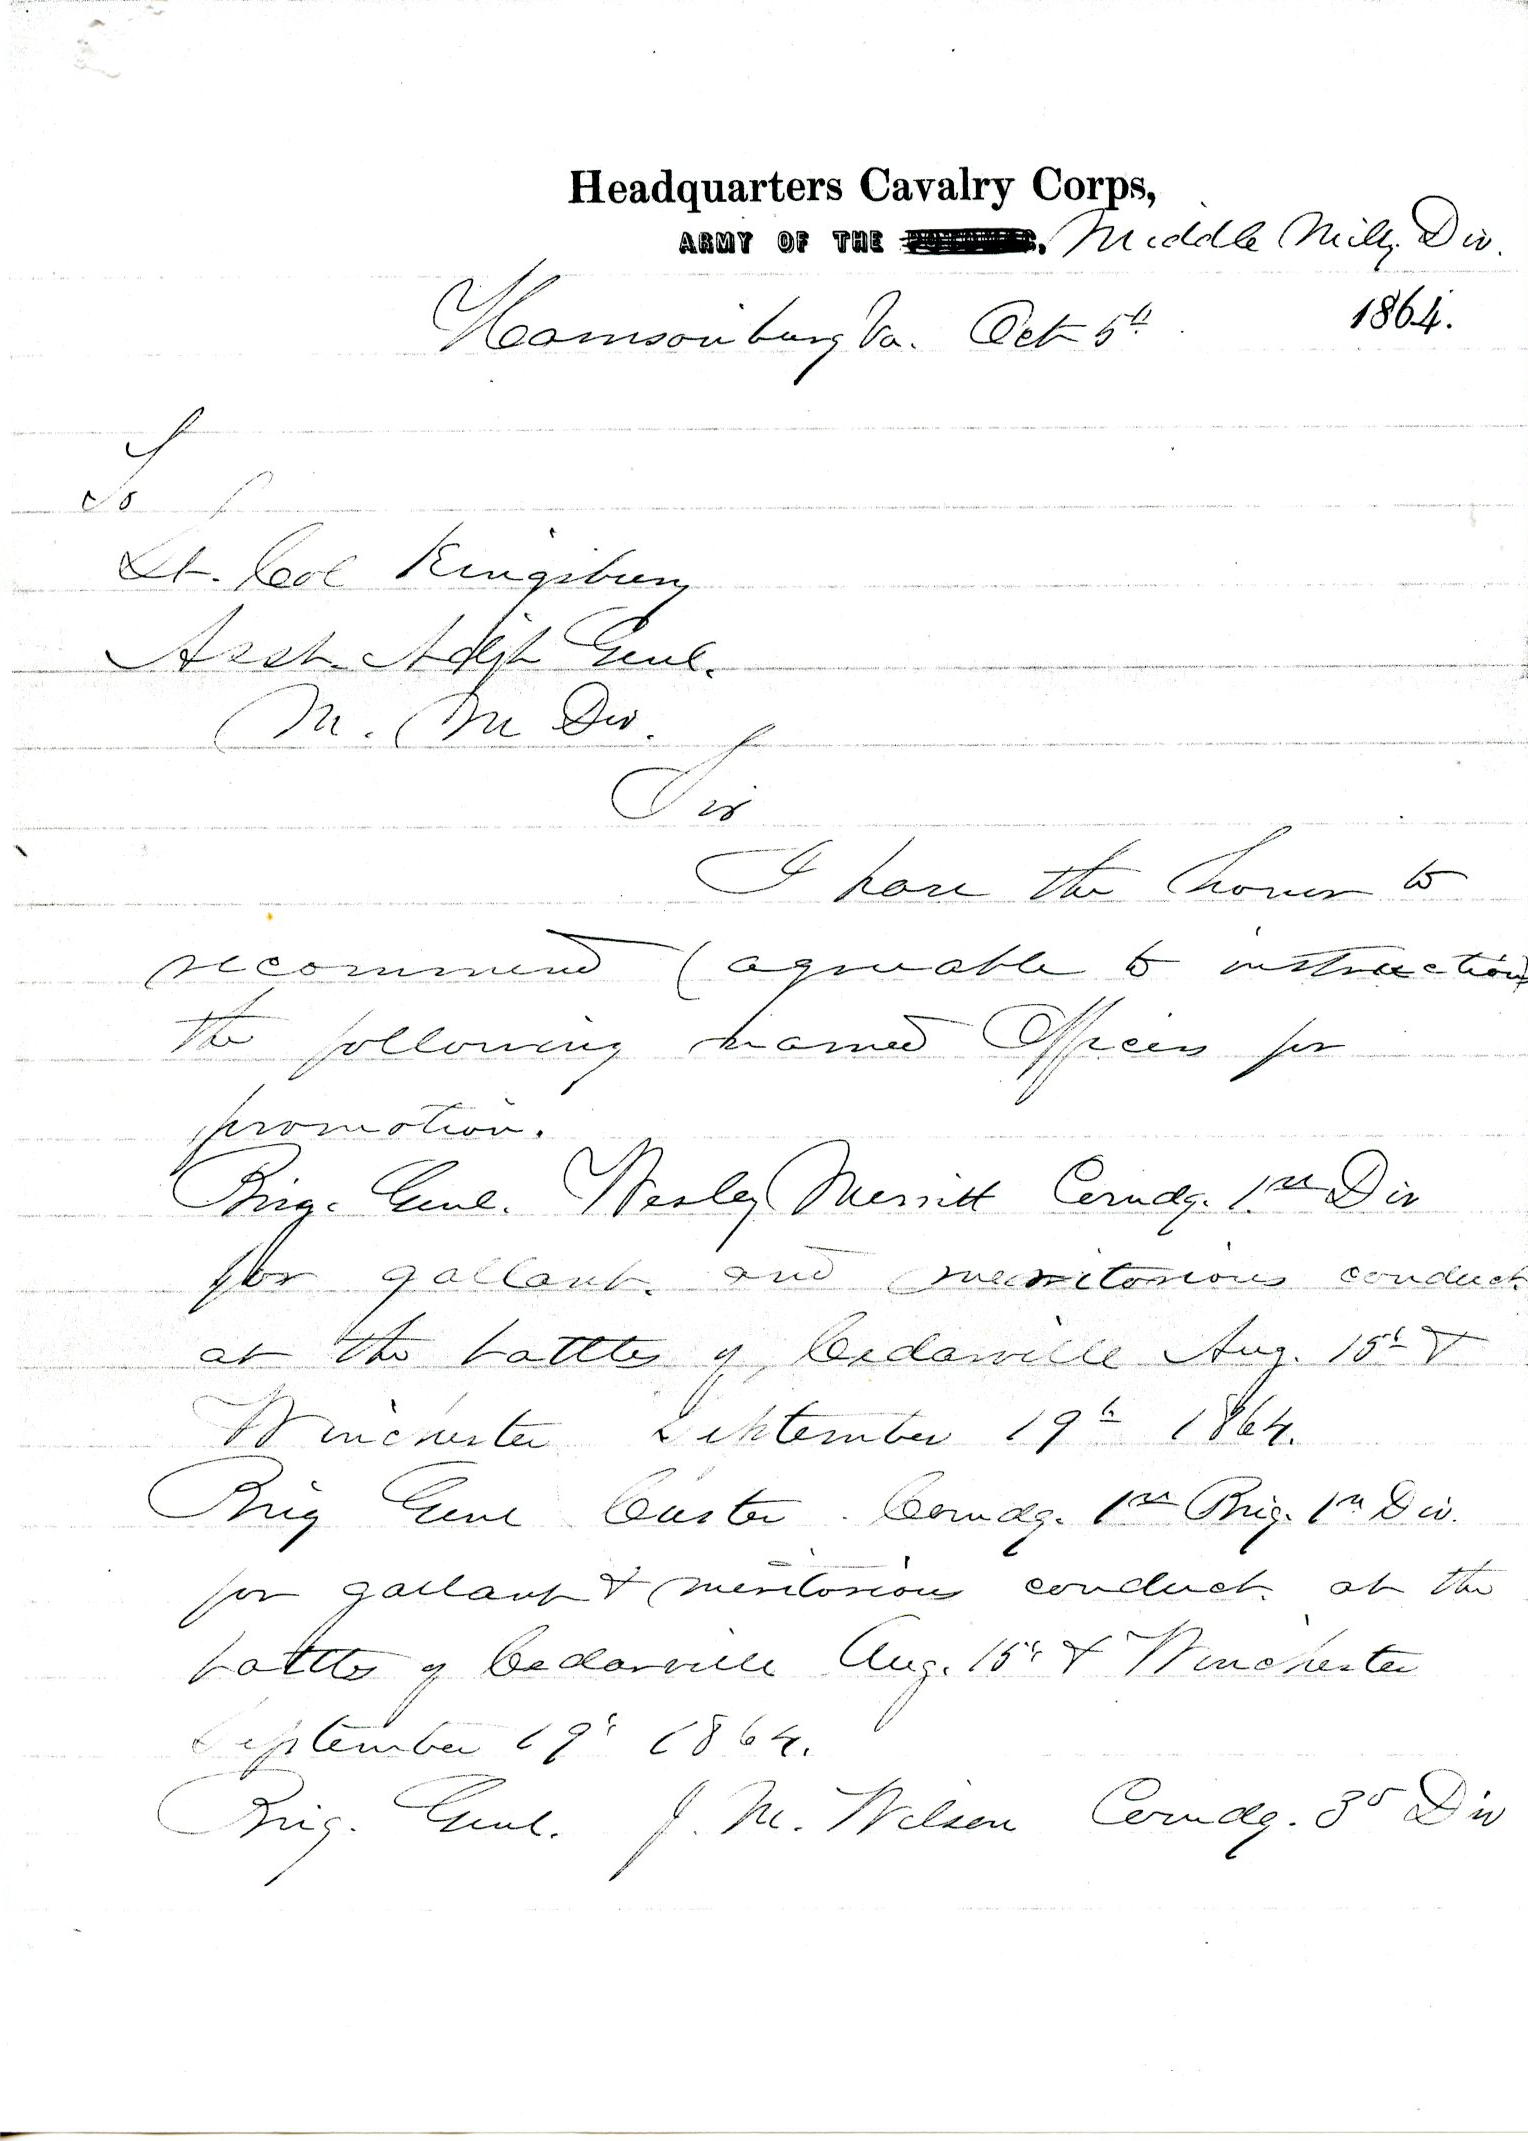 Headquarters Cavalry Corps,
ARMY OF THE Middle Mily. Div.
Harrisonburg Va. Oct 5th 1864.
To
Lt. Col Kingsbury
Asst. Adjt Genl.
M. M Div.
Sir
I have the honor to
recommend (agreeable to instructions)
the following named Officers for
promotion.
Brig. Genl. Wesley Merritt Comdg. 1st Div
for gallant and meritorious conduct
at the battles of Cedarville Aug. 15th &
Winchester September 19th 1864.
Brig Genl Custer Comdg. 1st Brig. 1st Div.
for gallant & meritorious conduct at the
battles of Cedarville Aug. 15th & Winchester
September 19th 1864.
Brig. Genl. J. M. Wilson Comdg. 3d Div